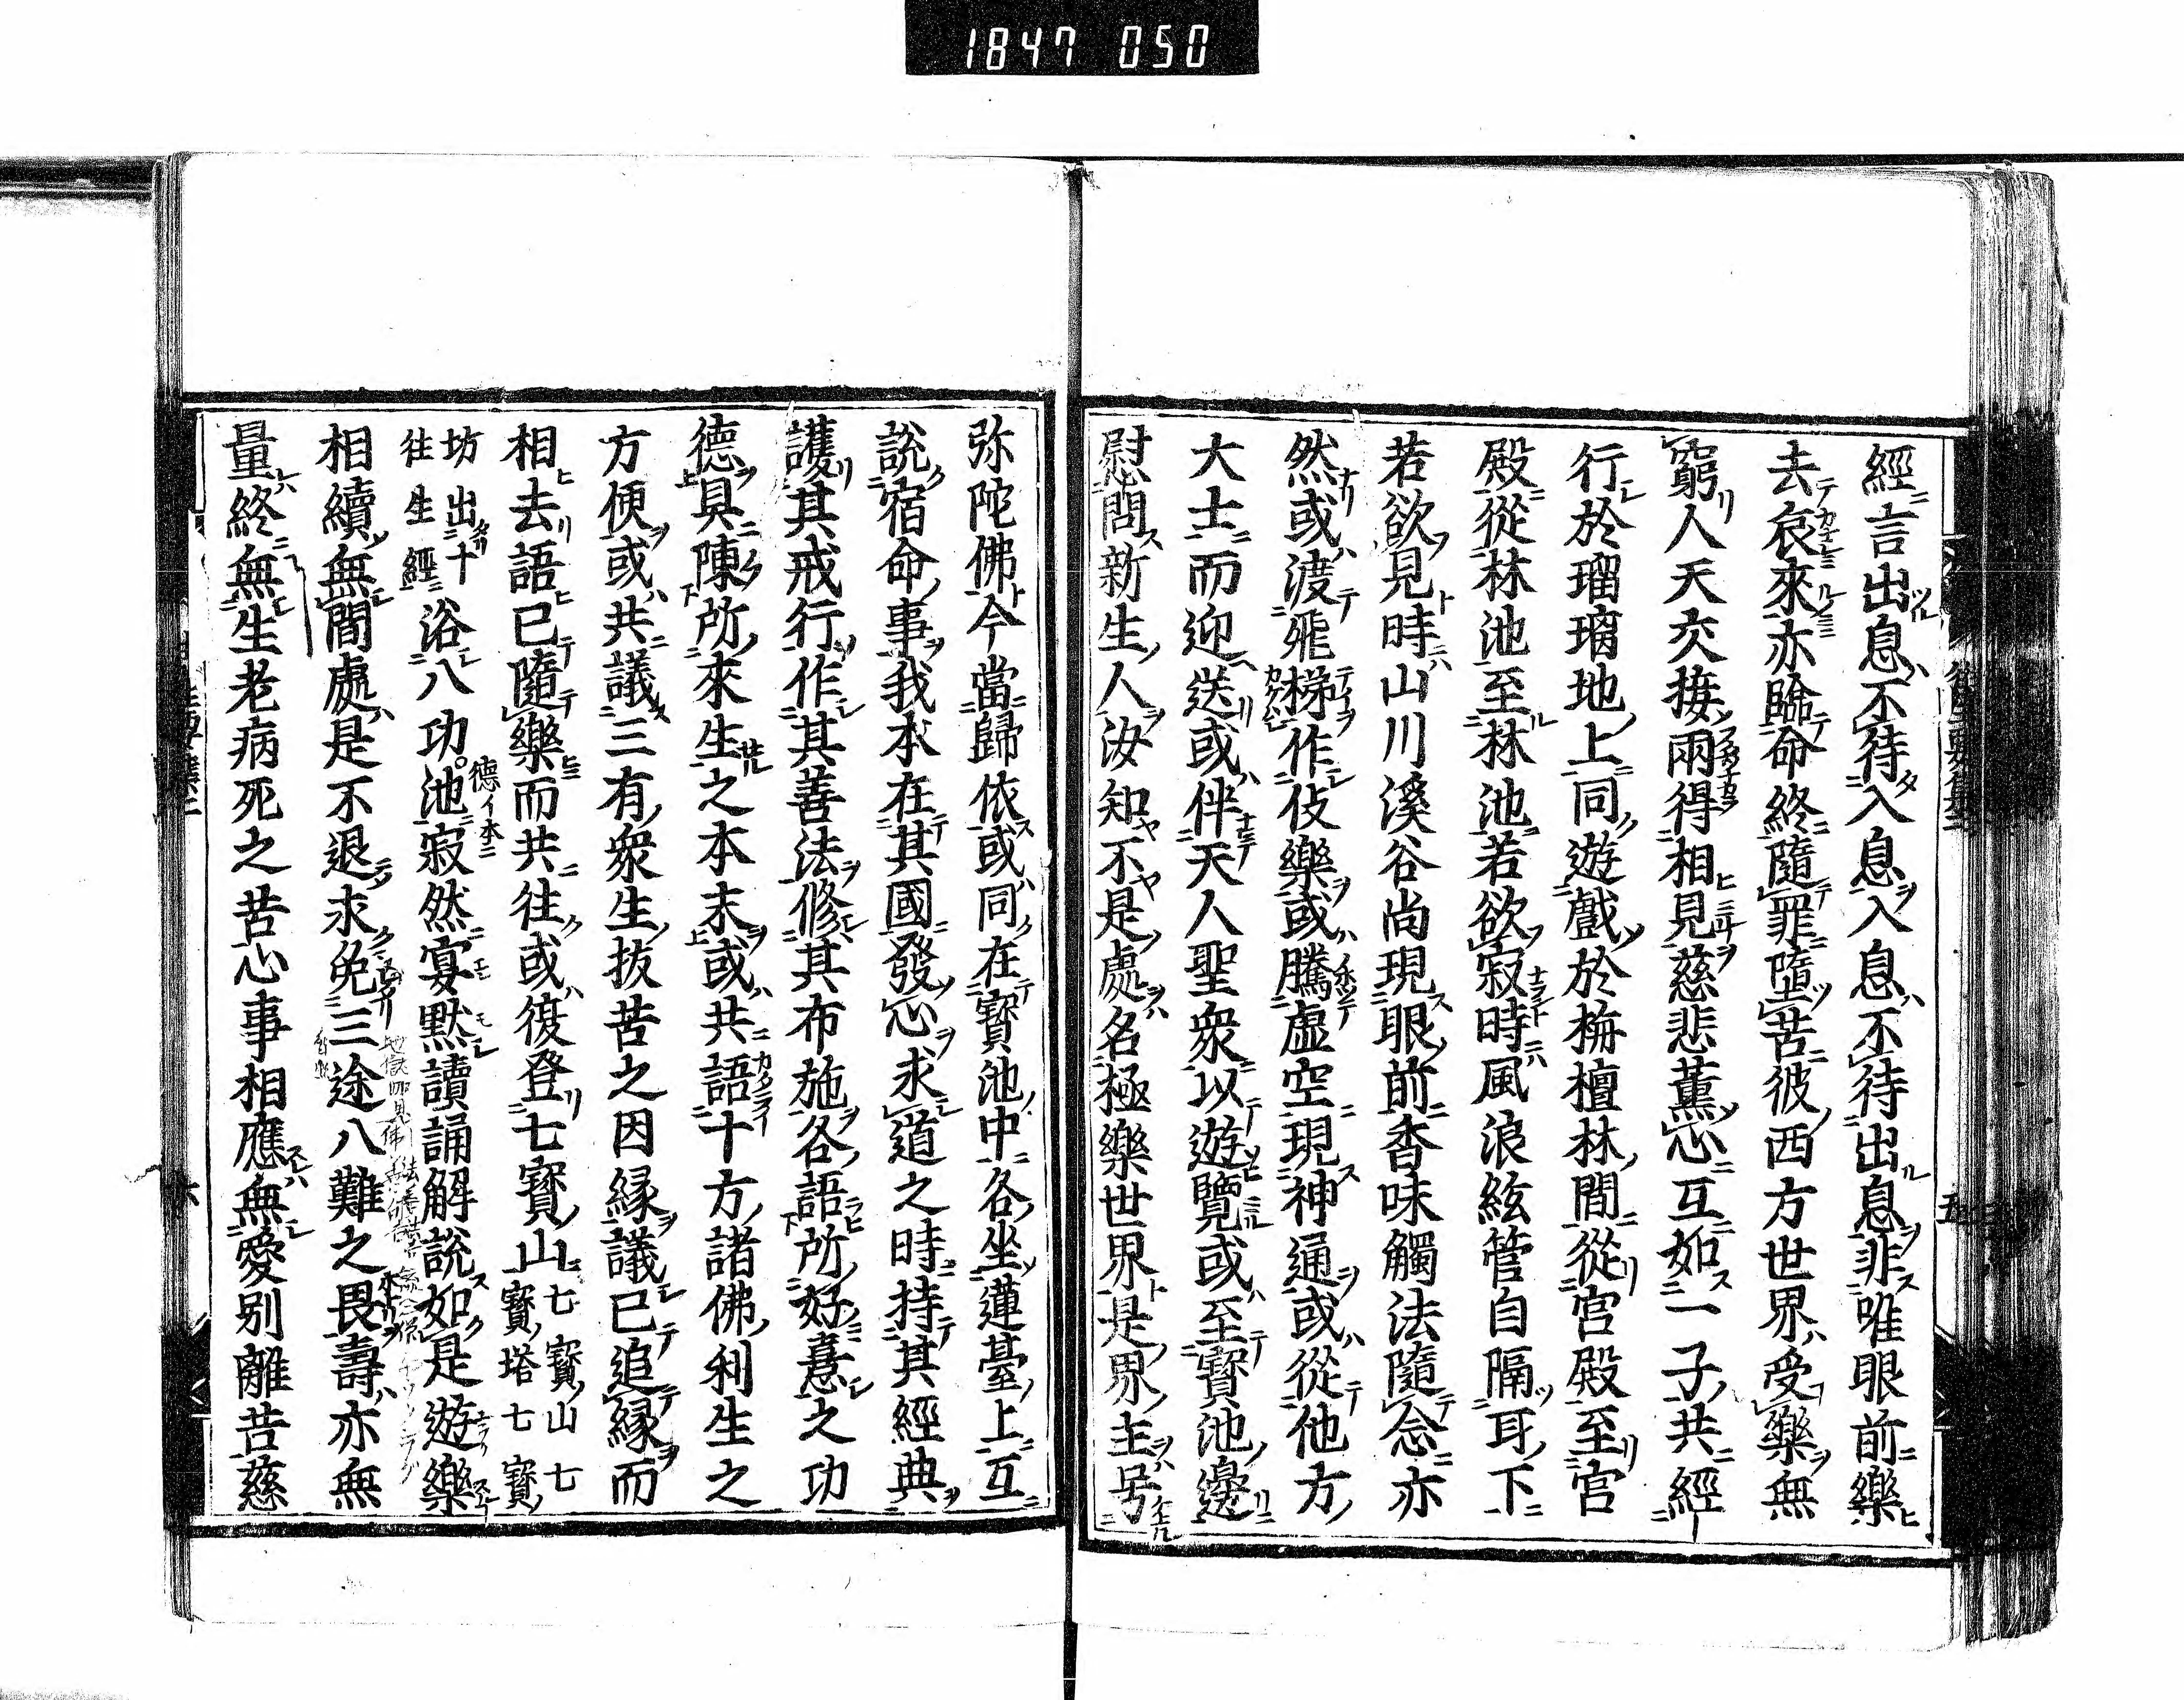 1847 050
經言出息不待入息入息不待出息非唯眼前樂
去哀來亦臨命終隨罪墮苦彼西方世界受樂無
窮人天交接兩得相見慈悲薰心互如一子共經
行於瑠璃地上同遊戲於栴檀林間從宮殿至宮
殿從林池至林池若欲寂時風浪絃管自隔耳下
若欲見時山川溪谷尚現眼前香味觸法隨念亦
然或渡飛梯作伎樂或騰虛空現神通或從他方
大士而迎送或伴天人聖衆以遊覽或至寶池邊
慰問新生人汝知不是處名極樂世界是界主号
弥陀佛今當歸依或同在寶池中各坐蓮臺上互
說宿命事我本在其國發心求道之時持其經典
護其戒行作其善法修其布施各語所好憙之功
德具陳所來生之本末或共語十方諸佛利生之
方便或共議三有衆生拔苦之因緣議已追緣而
相去語已隨樂而共往或復登七寶山七寶山七寶塔七寶
坊出十往生經浴八功池寂然宴默讀誦解說如是遊樂
德イ本ニ
相續無間處是不退求免三途八難之畏壽亦無
量終無生老病死之苦心事相應無愛別離苦慈
五
六